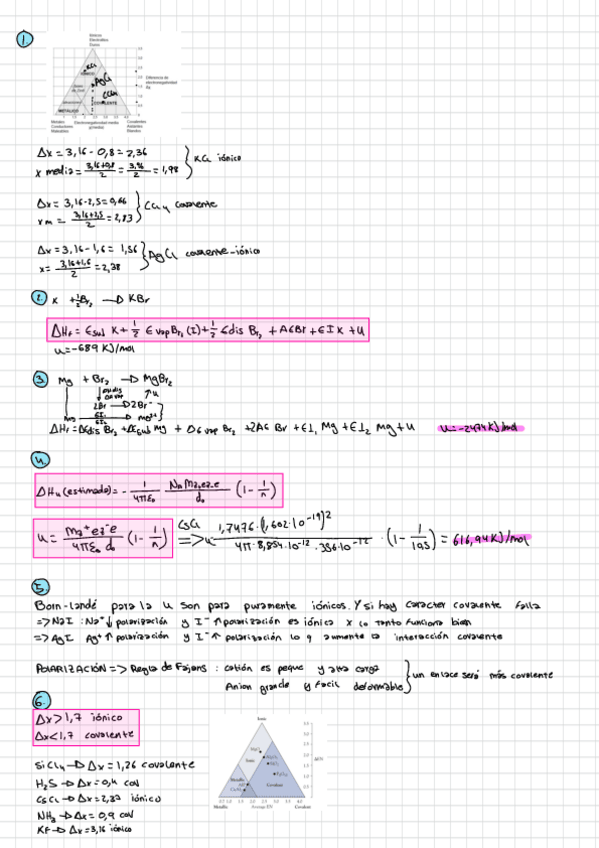 1.
Iónicos
Electrolitos
Duros
KCl
IÓNICO
AgCl
CCl4
COVALENTE
METÁLICO
Diferencia de
electronegatividad
Δx
Metales
Conductores
Maleables
Electronegatividad media
Covalentes
Aislantes
Blandos
Δx = 3,16 - 0,8 = 2,36
x media = 3,16+0,8 / 2 = 3,96 / 2 = 1,98
KCl iónico
Δx = 3,16-2,5 = 0,66
xm = 3,16+2,5 / 2 = 2,83
CCl4 covalente
Δx = 3,16 - 1,6 = 1,56
x = 3,16+1,6 / 2 = 2,38
AgCl covalente-iónico
2. K + 1/2 Br2 → KBr
ΔHf = Esub K + 1/2 E vap Br2 (l) + 1/2 Edis Br2 + AEBr + EI K + U
U = -689 KJ/mol
3. Mg + Br2 → MgBr2
2Br → 2Br-
↑U
EI1
EI2
Mg2+
ΔHf = ΔEdis Br2 + ΔEsub Mg + ΔE vap Br2 + 2AE Br + EI1 Mg + EI2 Mg + U
U = -2474 KJ/mol
4.
ΔHu (estimado) = - 1 / 4πε0 · NA M z+ e z- e / d0 (1 - 1/n)
U = M z+ e z- e / 4πε0 d0 (1 - 1/n) CsCl => U 1,7476 · (1,602·10-19)2 / 4π · 8,854·10-12 · 356·10-12 · (1 - 1/10,5) = 616,94 KJ/mol
5.
Born-Landé para la U son para puramente iónicos. Y si hay caracter covalente falla
=> NaI : Na+ ↓ polarización y I- ↑ polarización es iónica x lo tanto funciona bien
=> AgI Ag+ ↑ polarización y I- ↑ polarización lo q aumenta la interacción covalente
POLARIZACIÓN => Regla de Fajans : catión es peque y alta carga
Anion grande y facil deformable
un enlace será más covalente
6.
Δx > 1,7 iónico
Δx < 1,7 covalente
SiCl4 → Δx = 1,26 covalente
H2S → Δx = 0,4 cov
CsCl → Δx = 2,37 iónico
NH3 → Δx = 0,9 cov
KF → Δx = 3,16 iónico
Ionic
Ionic
Metallic
Covalent
Metallic
Average EN
Covalent